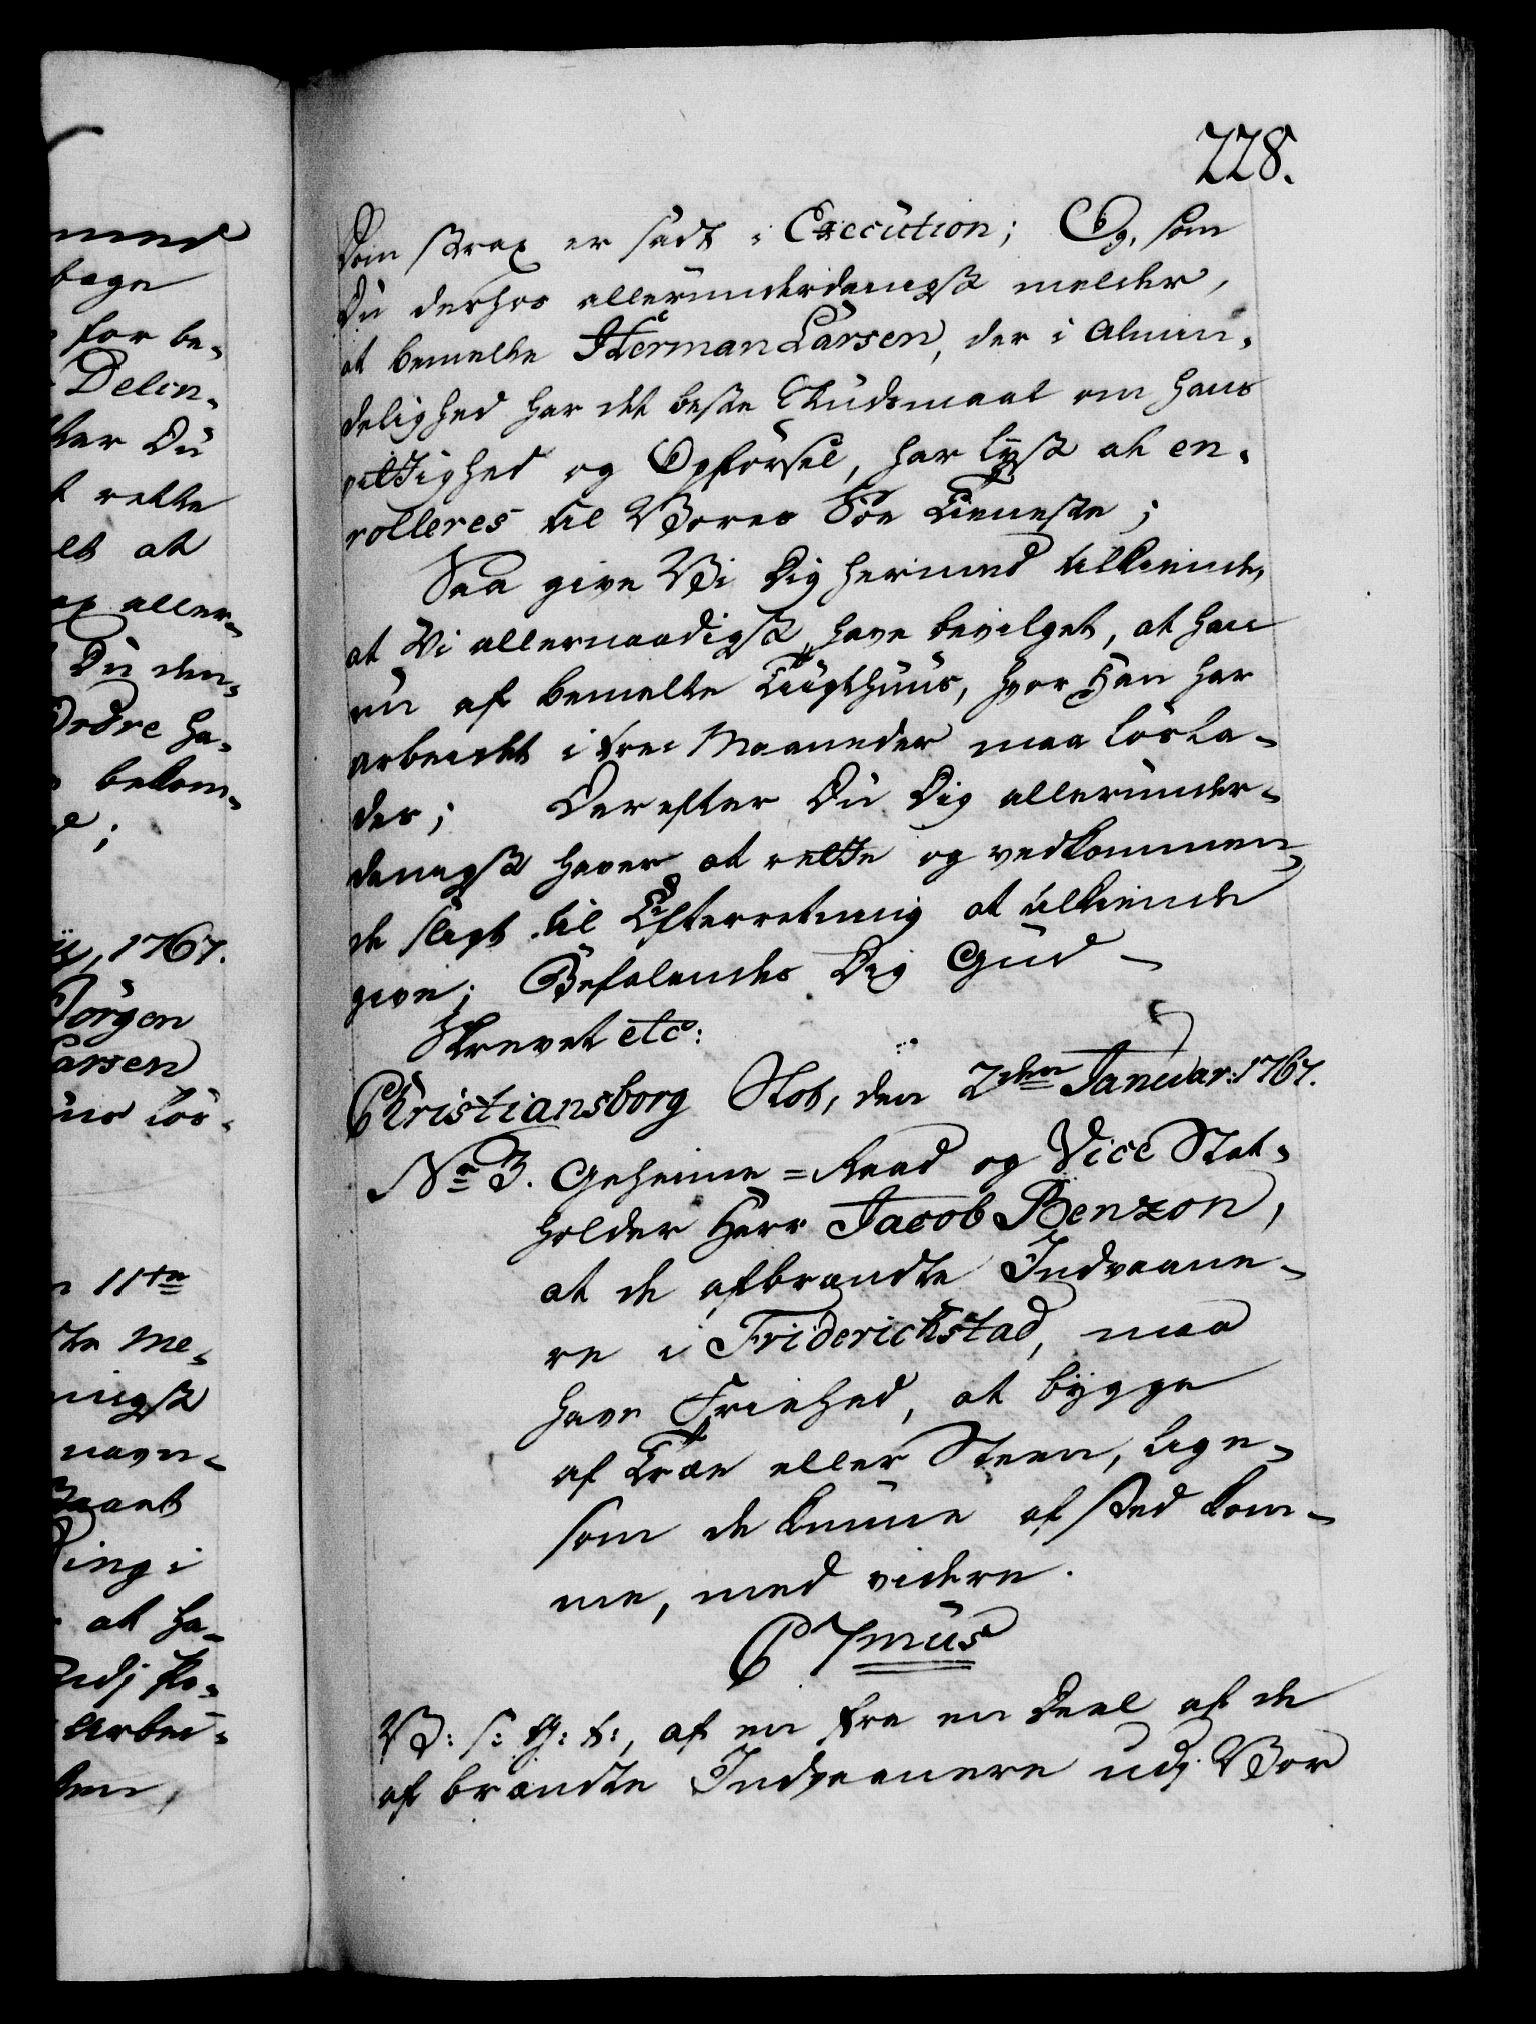 228.
Dom strax er sadt i Execution; Og, som
Du derhos allerunderdanigst melder,
at bemelte Herman Larsen, der i Almin-
delighed har det beste Skudsmaal om hans
vittighed og Opførsel, har lyst at en-
rolleres til Vores Søe Tieneste;
Saa give Vi Dig hermed tilkiende,
at Vi allernaadigst have bevilget, at han
nu af bemelte Tugthuus, hvor Han har
arbeidet i tre Maaneder maa løsla-
des; Derefter Du Dig allerunder-
danigst haver at rette og vedkommen-
de sligt til Efterretning at tilkiende
give; Befalendes Dig Gud -
Skrevet etc:
Christiansborg Slot, den 2den Januar: 1767.
No 3. Geheime-Raad og Vice Stat-
holder Herr Jacob Benzon,
at de afbrændte Indvaane-
re i Friderichstad, maa
have Friehed, at bygge
af Træe eller Steen, lige-
som de kunne af sted kom-
me, med videre.
C 7mus
V: s: G: t:, at en fra en Deel af de
afbrændte Indvaanere udj Vor
mmed
bage
for be-
Delin-
ter Du
t rette
let at
ax aller-
Du den-
Ordre ha-
bekom-
;
1767.
Jørgen
Larsen
løs-
11te
Me-
nigst
navn-
Ting i
at ha-
udj
arbei-